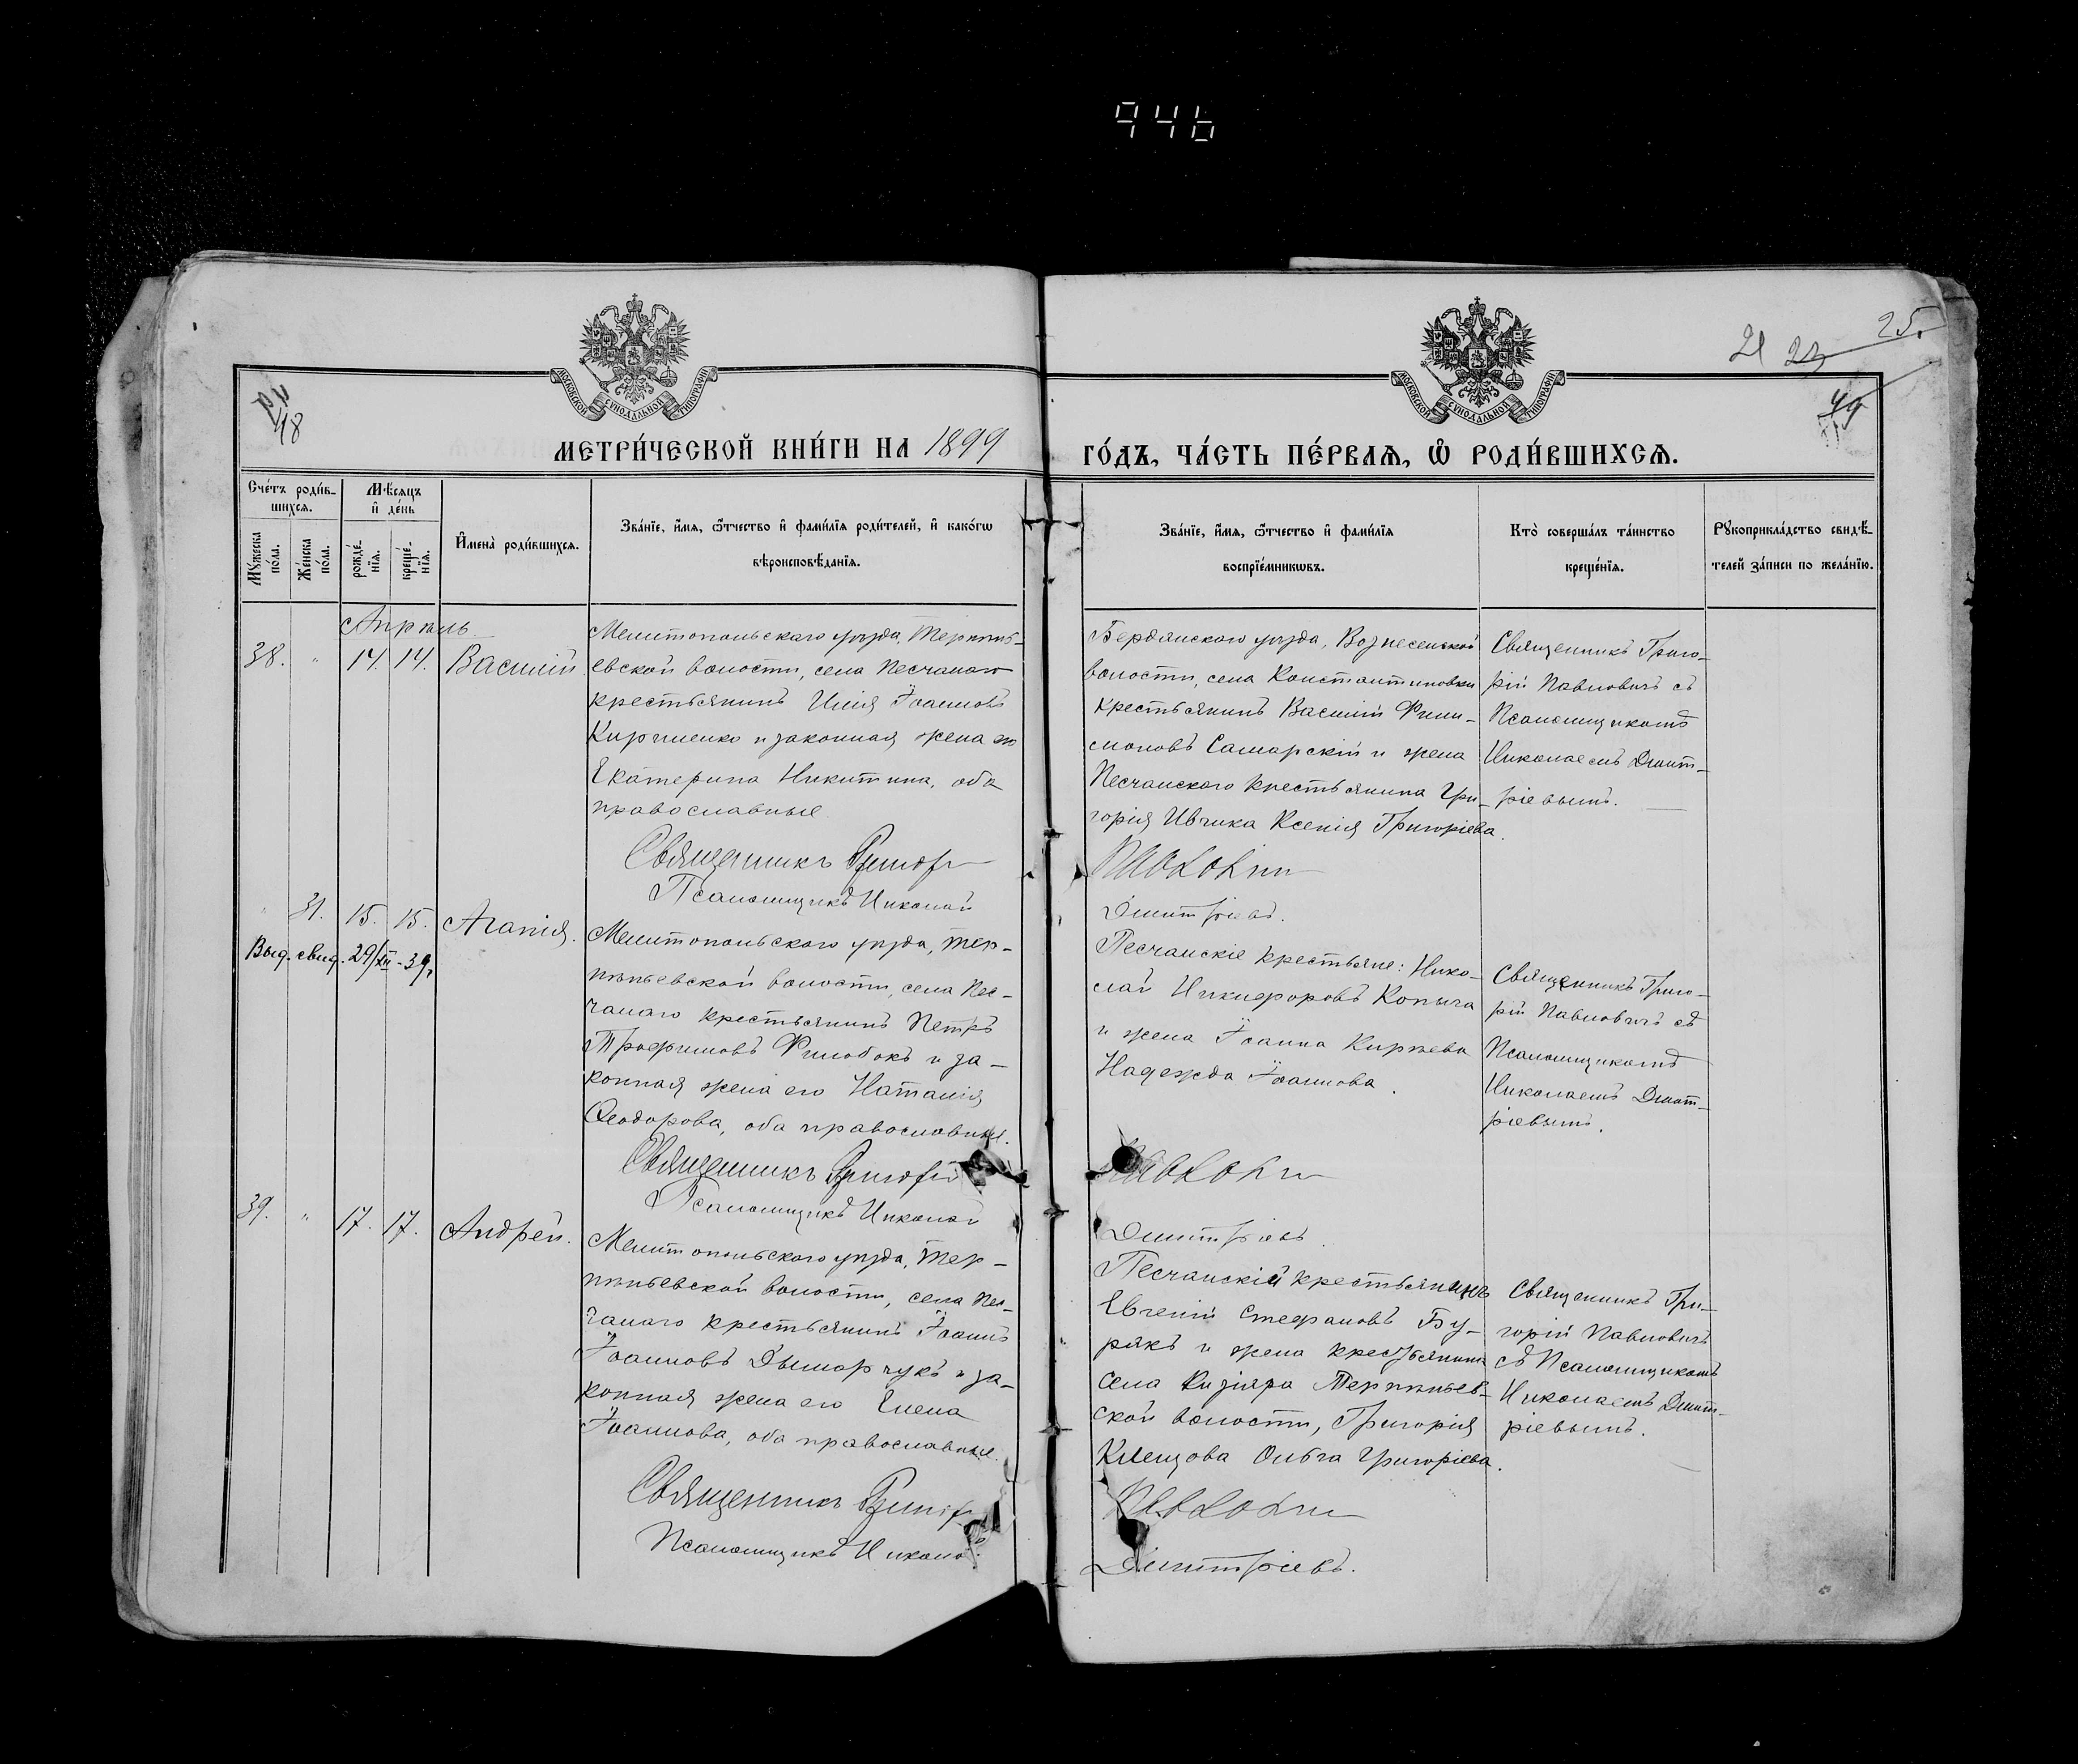 946
МОСКОВСКОЙ СУНОДАЛЬНОЙ ТИПОГРАФІИ
МОСКОВСКОЙ СУНОДАЛЬНОЙ ТИПОГРАФІИ
21 23 25.
49
18
МЕТРИ́ЧЕСКОЙ КНИ́ГИ НА 1899
ГО́ДЪ, ЧА́СТЬ ПЕ́РВАѦ, Ѽ РОДИ́ВШИХСѦ.
Сче́тъ роди́в-
шихсѧ.
Мѣсѧцъ
и҆ де́нь
Мꙋ́жеска по́ла.
Же́нска по́ла.
рожде́-
нїѧ.
креще́-
нїѧ.
И҆мена̀ роди́вшихсѧ.
Зва́нїе, и҆́мѧ, ѻ҆́тчество и҆ фами́лїѧ роди́телей, и҆ како́гѡ
вѣроисповѣ́данїѧ.
Зва́нїе, и҆́мѧ, ѻ҆́тчество и҆ фами́лїѧ
воспрїе́мникѡвъ.
Кто̀ соверша́лъ та́инство
креще́нїѧ.
Рꙋкоприкла́дство свидѣ́-
телей за́писи по жела́нїю.
Апрѣль
38. " 14. 14. Василій
Мелитопольскаго уѣзда, Терпѣнь-
евской волости, села Песчанаго
крестьянинъ Илія Іоанновъ
Кириченко и законная жена его
Екатерина Никитина, оба
православные
Священникъ Григорі
Псаломщикъ Николай
Бердянскаго уѣзда, Вознесенской
волости, села Константиновки
крестьянинъ Василій Фили-
моновъ Самарскій и жена
Песчанского крестьянина Гри-
горія Ивчика Ксенія Григоріева.
Павловичъ
Димитріевъ.
Священникъ Григо-
рій Павловичъ съ
Псаломщикомъ
Николаемъ Димит-
ріевымъ.
" 31. 15. 15. Агапія.
Выд. свид. 29/XII-39г.
Мелитопольского уѣзда, Тер-
пѣньевской волости, села Пес-
чанаго крестьянинъ Петръ
Трофимовъ Филобокъ и за-
конная жена его Наталія
Ѳеодорова, оба православные.
Священникъ Григорій
Псаломщикъ Николай
Песчанскіе крестьяне: Нико-
лай Никифоровъ Копыча
и жена Іоанна Кирѣева
Надежда Іоаннова.
Павловичъ
Димитріевъ.
Священникъ Григо-
рій Павловичъ съ
Псаломщикомъ
Николаемъ Димит-
ріевымъ.
39. " 17. 17. Андрей.
Мелитопольскаго уѣзда, Тер-
пѣньевской волости, села Пес-
чанаго крестьянинъ Іоаннъ
Іоанновъ Дымарчукъ и за-
конная жена его Елена
Іоаннова, оба православные.
Священникъ Григорі
Псаломщикъ Николай
Песчанскій крестьянинъ
Евгеній Стефановъ Бу-
рякъ и жена крестьянина
села Кизіяра Терпѣньев-
ской волости, Григорія
Клещова Ольга Григоріева.
Павловичъ
Димитріевъ.
Священникъ Гри-
горій Павловичъ
съ Псаломщикомъ
Николаемъ Димит-
ріевымъ.